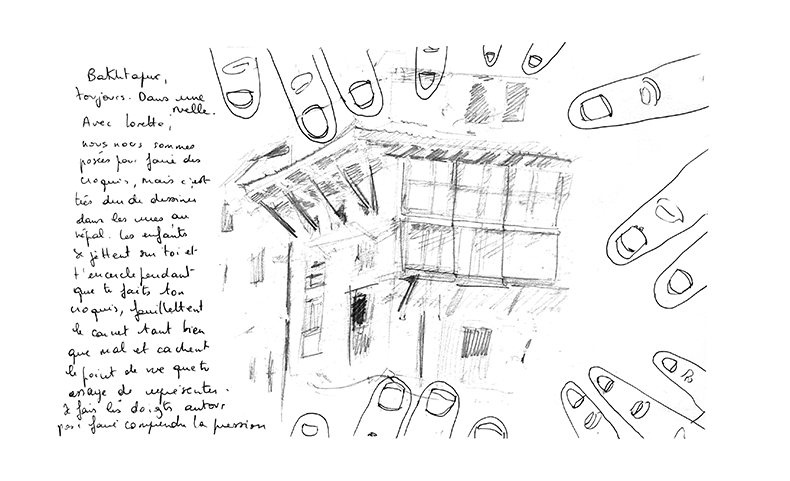 Bakhtapur,
toujours. Dans une
ruelle.
Avec Loretta,
nous nous sommes
posées pour faire des
croquis, mais c'est
très dur de dessiner
dans les rues au
népal. Les enfants
se jettent sur toi et
t'encercle pendant
que tu faits ton
croquis, feuillettent
le carnet tant bien
que mal et cachent
le point de vue que tu
essaye de représenter.
Je fais les doigts autour
pour faire comprendre la pression